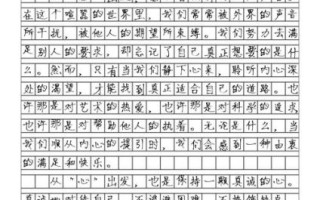 在这个喧嚣的世界里，我们常常被外界的声音
所干扰，被他人的期望所束缚。我们努力去满
足别人的要求，却忘记了自己真正想要的是什
么。然而，只有当我们静下心来，聆听内心深
处的渴望，才能找到真正适合自己的道路。也
许那是对艺术的热爱，也许那是对科学的追求
也许那是对帮助他人的执着。无论是什么，当
我们顺从内心的指引时，我们会感到一种由衷
的满足和快乐。
从“心”出发，也是保持一颗真诚的心。